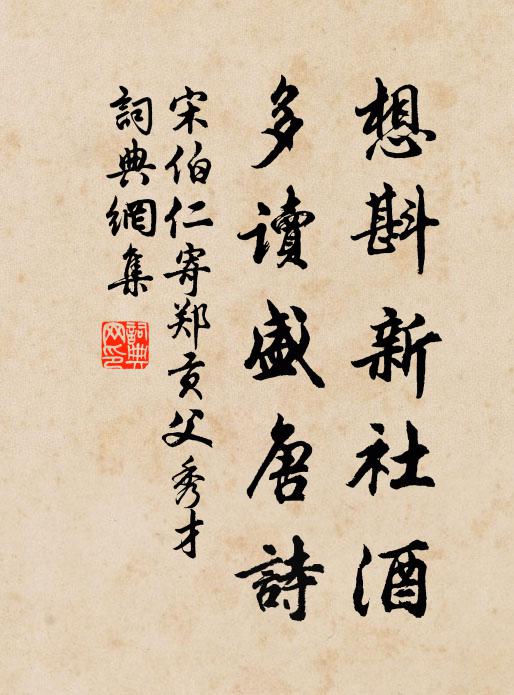 想斟新社酒
多讀盛唐詩
宋伯仁寄郑贡父秀才
詞典網集
詞典网印